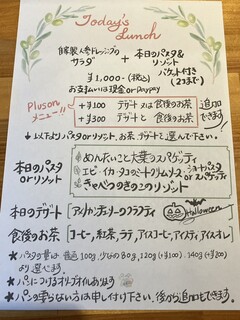 Today's
Lunch
自家製人参ドレッシングの
サラダ
+
本日のパスタ&
リゾット
バケット付き
(2コまで)
¥1,000-(税込)
お支払いは現金 or PayPay
Pluson
メニュー!!
+¥100 デザート又は食後のお茶
+¥300 デザートと食後のお茶
追加
できます!
↓以下よりパスタorリゾット、お茶、デザートと選んで下さい。
本日のパスタ
orリゾット
めんたいこと大葉のスパゲティ
エビ・イカ・タコのトマトクリームソース ショートパスタ
or スパゲッティ
きゃべつときのこのリゾット
本日のデザート
Halloween
食後のお茶
[コーヒー, 紅茶, ラテ, アイスコーヒー, アイスティ, アイスオレ]
★パスタの量は 普通 100g 少なめ 80g, 120g(+¥100) 140g(+¥200)
より選べます。
★パスタにつけるオリーブオイルあります
★パンの要らない方は申し付け下さい、後から追加もできます。